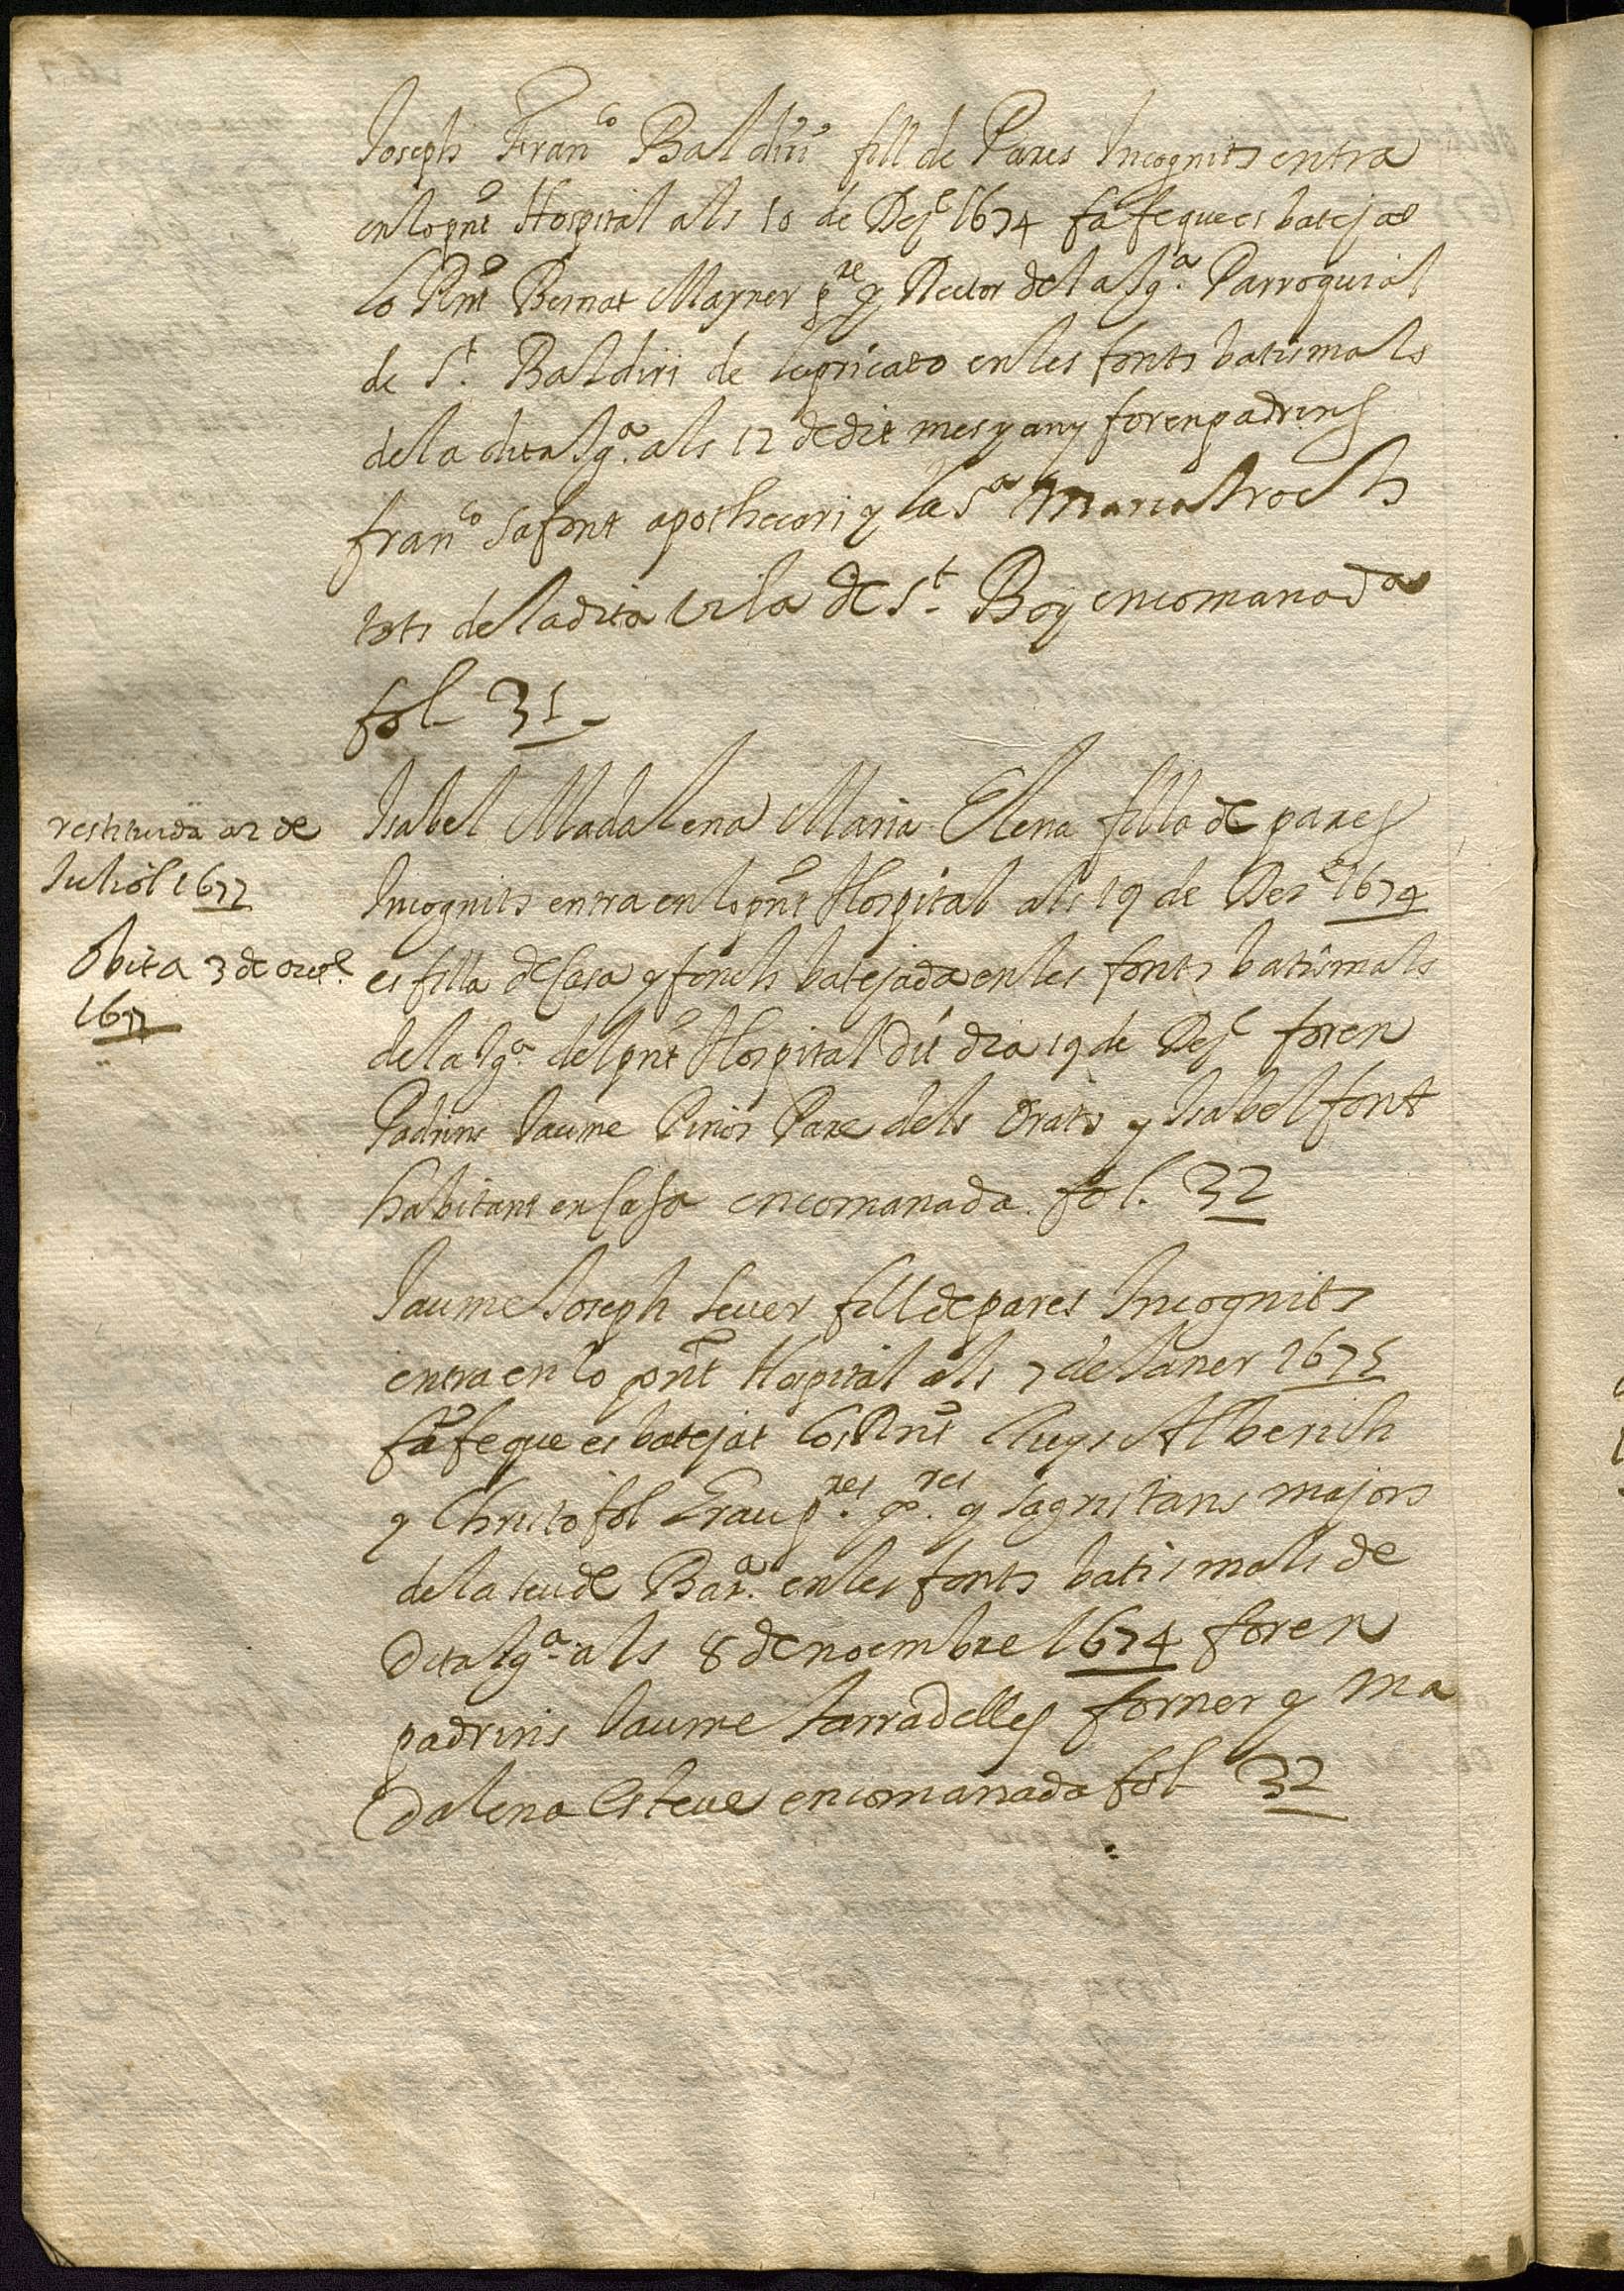 Joseph Franco Baldiri fill de Pares Incognits entra
en lo pnt Hospital als 10 de Dese 1674 fa fe que es batejat
lo Rnt Bernat Mayner pre y Rector de la Iga. Parroquial
de St. Baldiri de lupricato en les fonts batismals
de la dita Iga. als 12 de dit mes y any foren padrins
franco Safont apothecari y la Sa Maria Roch
tots de la dita vila de St. Boy encomanada
fol 31.
Isabel Madalena Maria Elena filla de pares
Incognits entra en lo pnt Hospital als 19 de Dese 1674
es filla de Casa y fonch batejada en les fonts batismals
de la Iga. del pnt Hospital dit dia 19 de Dese foren
Padrins Jaume Piñor Pare dels Orats y Isabel font
habitant en Casa encomanada. fol. 32
restituida a 2 de
Juliol 1677
Obita 3 de
1677
Jaume Joseph Sever fill de pares Incognits
entra en lo pnt Hospital als 7 de Janer 1675
fa fe que es batejat los Rnt Lluys Alberich
y Christofol Grau pres. y sagristans majors
de la seu de Bara. en les fonts batismals de
dita Iga. als 8 de noembre 1674 foren
padrins Jaume Tarradelles forner y Ma
dalena Esteve encomanada fol 32